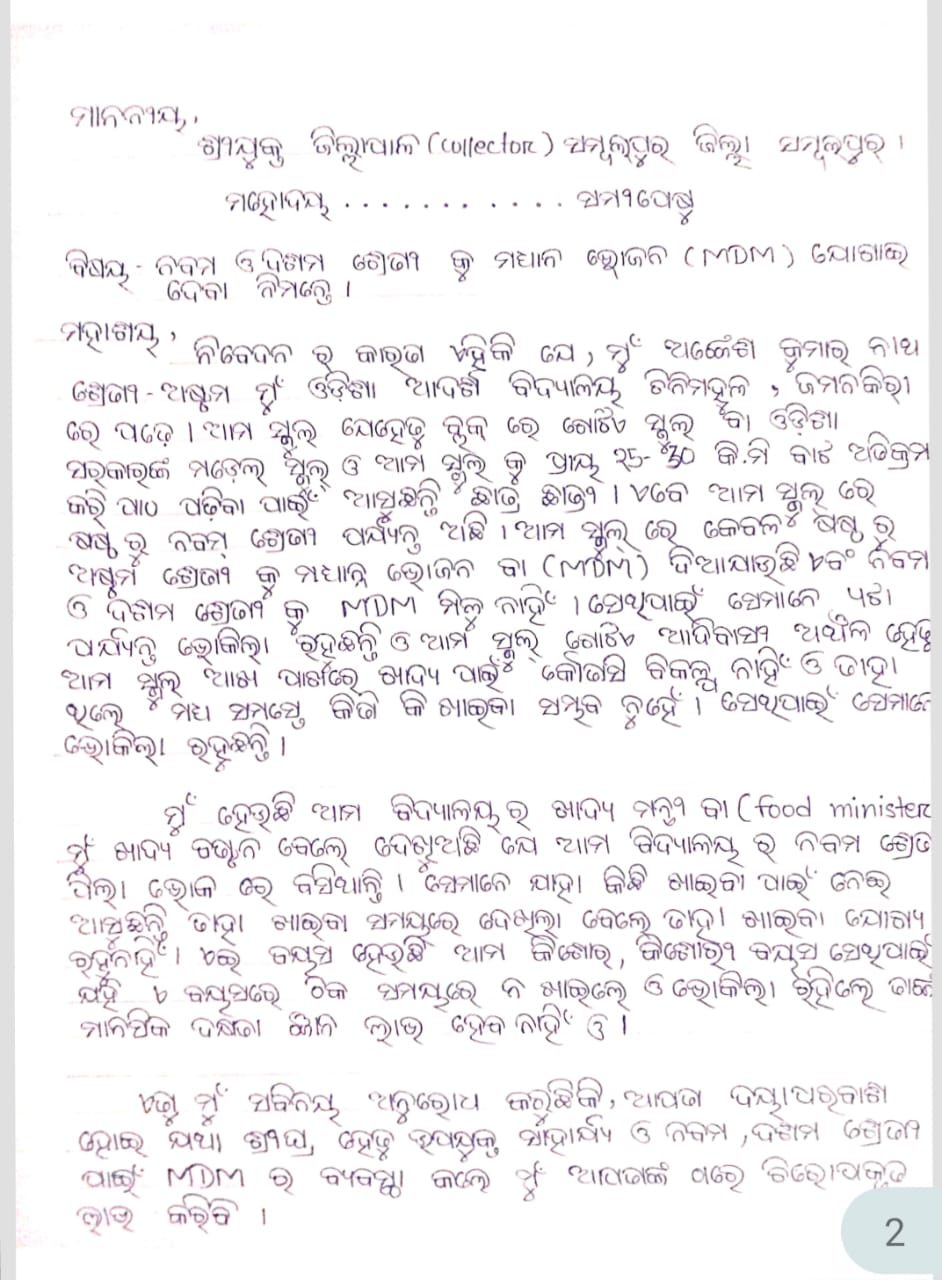 ମାନନୀୟ,
ଶ୍ରୀଯୁକ୍ତ ଜିଲ୍ଲାପାଳ (collector) ସମ୍ବଲପୁର ଜିଲ୍ଲା ସମ୍ବଲପୁର ।
ମହୋଦୟ . . . . . . . . . . . ସମୀପେଷୁ
ବିଷୟ - ନବମ ଓ ଦଶମ ଶ୍ରେଣୀ କୁ ମଧାନ ଭୋଜନ (MDM) ଯୋଗାଇ
ଦେବା ନିମନ୍ତେ ।
ମହାଶୟ,
ନିବେଦନ ର କାରଣ ଏହିକି ଯେ, ମୁଁ କୁମାର ନାଥ
ଶ୍ରେଣୀ - ଅଷ୍ଟମ ମୁଁ ଓଡ଼ିଶା ଆଦର୍ଶ ବିଦ୍ୟାଳୟ ଚିନିମହୁଲ, ଜମନକିରା
ରେ ପଢେ଼ । ଆମ ସ୍କୁଲ୍ ଯେହେତୁ ବ୍ଲକ୍ ରେ ଗୋଟିଏ ସ୍କୁଲ୍ ବା ଓଡ଼ିଶା
ସରକାରଙ୍କ ମଡ଼େଲ୍ ସ୍କୁଲ୍ ଓ ଆମ ସ୍କୁଲ୍ କୁ ପ୍ରାୟ 25-30 କି.ମି ବାଟ ଅତିକ୍ରମ
କରି ପାଠ ପଢ଼ିବା ପାଇଁ ଆସୁଛନ୍ତି ଛାତ୍ର ଛାତ୍ରୀ । ଏବେ ଆମ ସ୍କୁଲ୍ ରେ
ଷଷ୍ଠ ରୁ ନବମ୍ ଶ୍ରେଣୀ ପର୍ଯ୍ୟନ୍ତ ଅଛି । ଆମ ସ୍କୁଲ୍ ରେ କେବଳ ଷଷ୍ଠ ରୁ
ଅଷ୍ଟମ ଶ୍ରେଣୀ କୁ ମଧାନ୍ନ ଭୋଜନ ବା (MDM) ଦିଆଯାଉଛି ଏବଂ ନବମ
ଓ ଦଶମ ଶ୍ରେଣୀ କୁ MDM ମିଳୁ ନାହିଁ । ସେଥିପାଇଁ ସେମାନେ ୪ଟା
ପର୍ଯ୍ୟନ୍ତ ଭୋକିଲା ରହୁଛନ୍ତି ଓ ଆମ ସ୍କୁଲ୍ ଗୋଟିଏ ଆଦିବାସୀ ଅଞ୍ଚଳ ହେତୁ
ଆମ ସ୍କୁଲ୍ ଆଖ ପାଖରେ ଖାଦ୍ୟ ପାଇଁ କୌଣସି ବିକଳ୍ପ ନାହିଁ ଓ ତାହା
ଥିଲେ ମଧ ସମସ୍ତେ କିଣି କି ଖାଇବା ସମ୍ଭବ ନୁହେଁ । ସେଥିପାଇଁ ସେମାନେ
ଭୋକିଲା ରହୁଛନ୍ତି ।
ମୁଁ ହେଉଛି ଆମ ବିଦ୍ୟାଳୟ ର ଖାଦ୍ୟ ମନ୍ତ୍ରୀ ବା (food minister
ମୁଁ ଖାଦ୍ୟ ବଣ୍ଟନ ବେଲେ ଦେଖୁଅଛି ଯେ ଆମ ବିଦ୍ୟାଳୟ ର ନବମ ଶ୍ରେଣୀ
ପିଲା ଭୋକ ରେ ବସିଥାନ୍ତି । ସେମାନେ ଯାହା କିଛି ଖାଇବା ପାଇଁ ନେଇ
ଆସୁଛନ୍ତି ତାହା ଖାଇବା ସମୟରେ ଦେଖିଲା ବେଲେ ତାହା ଖାଇବା ଯୋଗ୍ୟ
ରହୁନାହିଁ । ଏଇ ବୟସ ହେଉଛି ଆମ କିଶୋର, କିଶୋରୀ ବୟସ ସେଥିପାଇଁ
ଯଦି ଏ ବୟସରେ ଠିକ ସମୟରେ ନ ଖାଇଲେ ଓ ଭୋକିଲା ରହିଲେ ତାଙ୍କ
ମାନସିକ ଦକ୍ଷତା ଜ୍ଞାନ ଲାଭ ହେବ ନାହିଁ ଓ ।
ଏଣୁ ମୁଁ ସବିନୟ ଅନୁରୋଧ କରୁଛିକି, ଆପଣ ଦୟାପରବାଶ
ହୋଇ ଯଥା ଶୀଘ୍ର ହେତୁ ଉପଯୁକ୍ତ ସାହାର୍ଯ୍ୟ ଓ ନବମ, ଦଶମ ଶ୍ରେଣୀ
ପାଇଁ MDM ର ବ୍ୟବସ୍ଥା କଲେ ମୁଁ ଆପଣଙ୍କ ଠାରେ ଚିରୋପକୃତ
ଲାଭ କରିବି ।
2